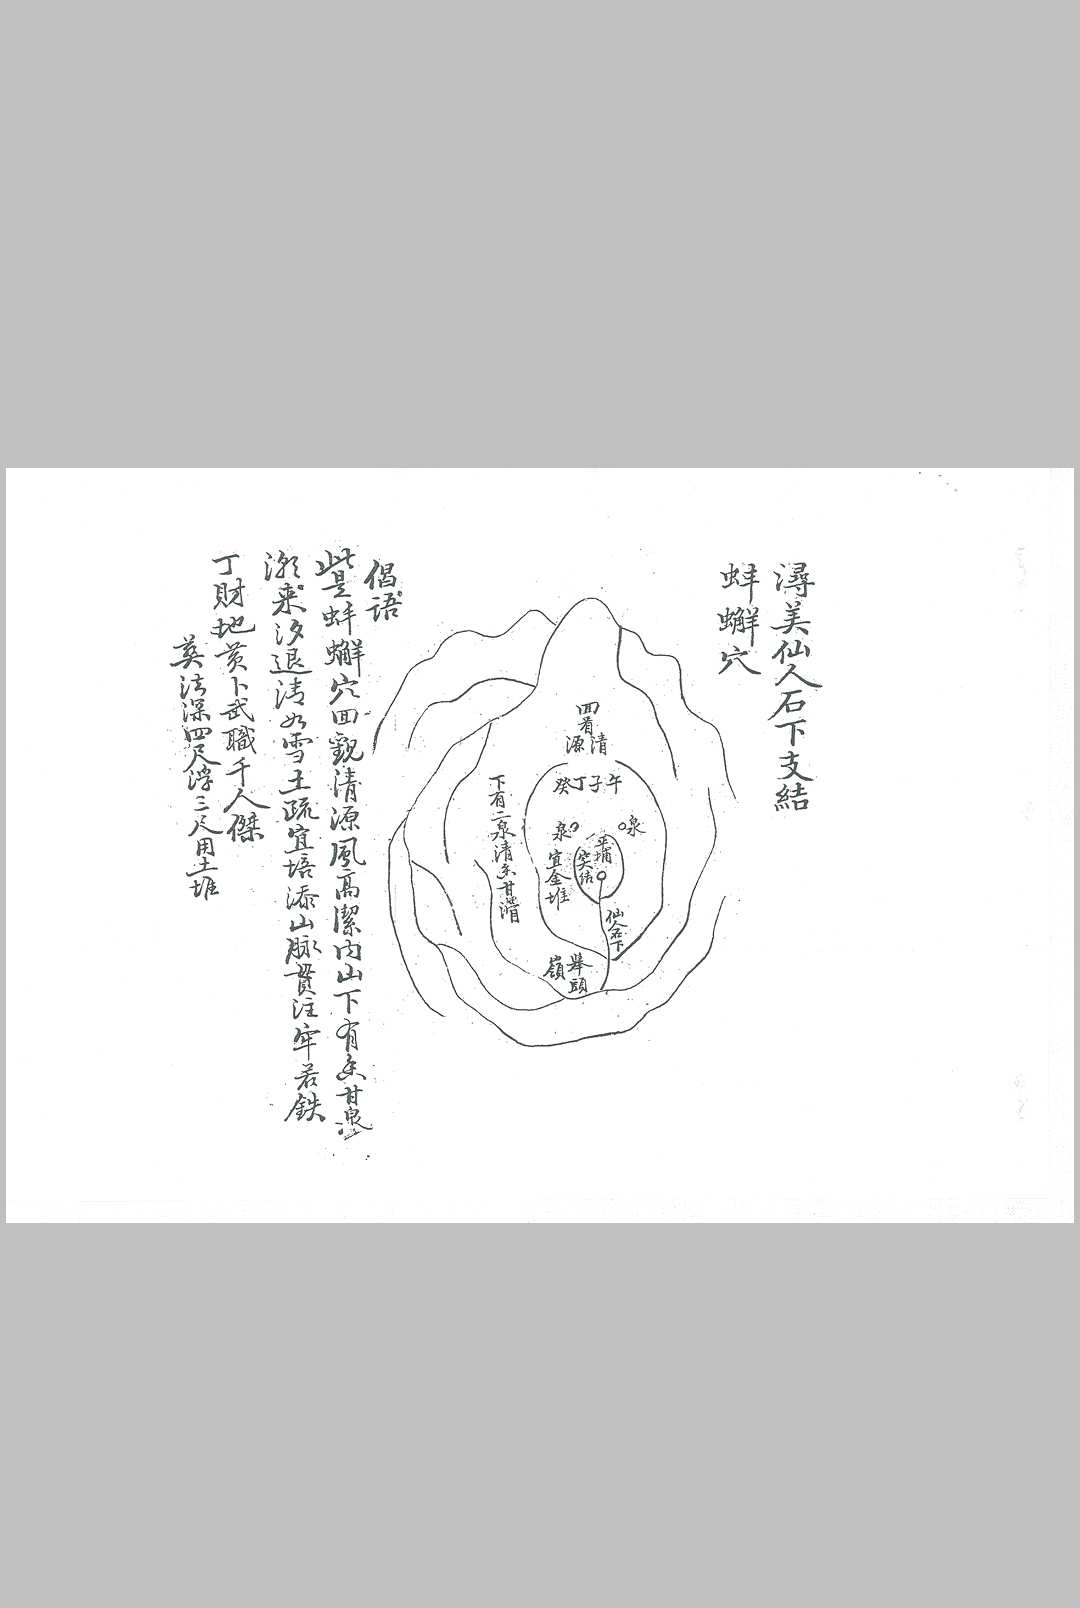 潯美仙人石下支結
蚌蠏穴
回看
清源
癸丁子午
泉
泉
平埔
突结
宜金堆
仙人石下
下有二泉清香甘清
舉頭
嶺
倡語
此是蚌蠏穴回觀清源風高潔内山下有香甘泉
潮来汐退清如雪土疏宜培添山脉貫注牢若鉄
丁財地黄卜武職千人傑
葬法深四尺浮三尺用土堆